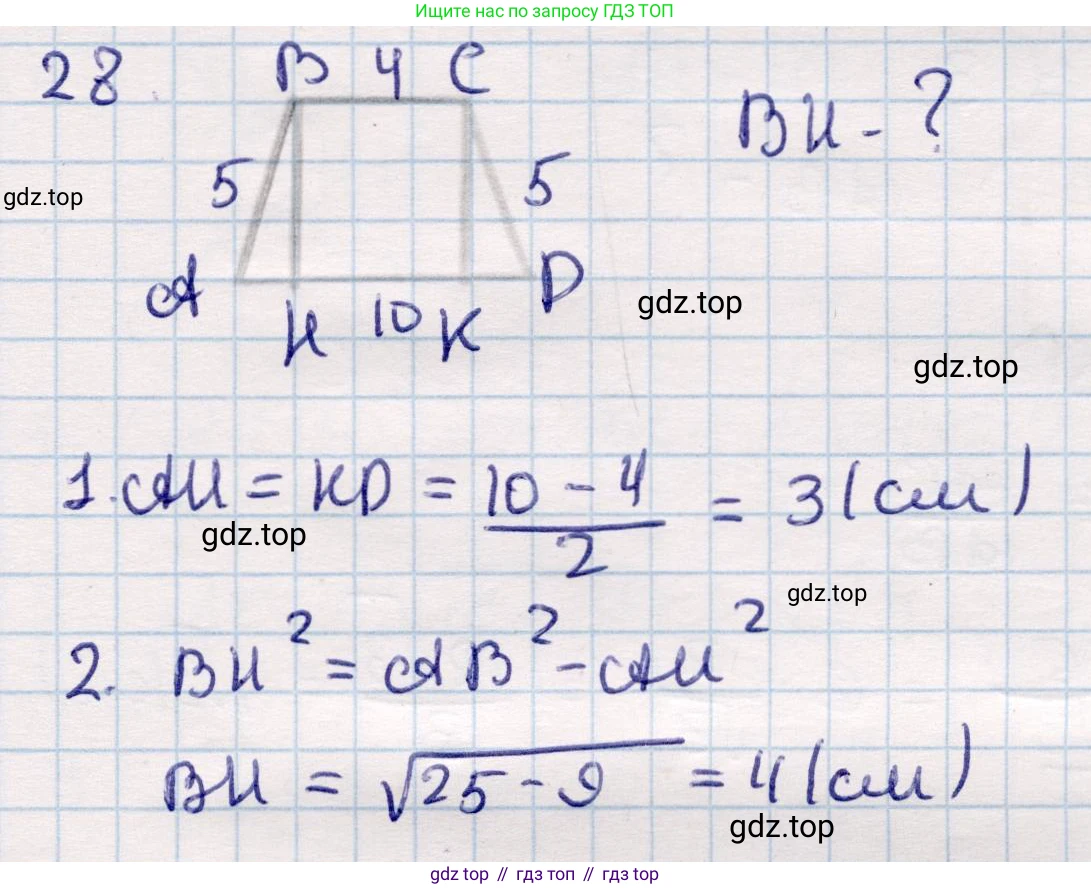 Ищите нас по запросу ГДЗ ТОП
28. B 4 C
BH - ?
5 5
gdz.top
A D
gdz.top
H 10 K
gdz.top
1. AH = KD = \frac{10 - 4}{2} = 3 (см)
gdz.top
gdz.top
2. BH² = AB² - AH²
BH = √25 - 9 = 4 (см)
gdz.top
gdz.top // гдз топ // гдз top